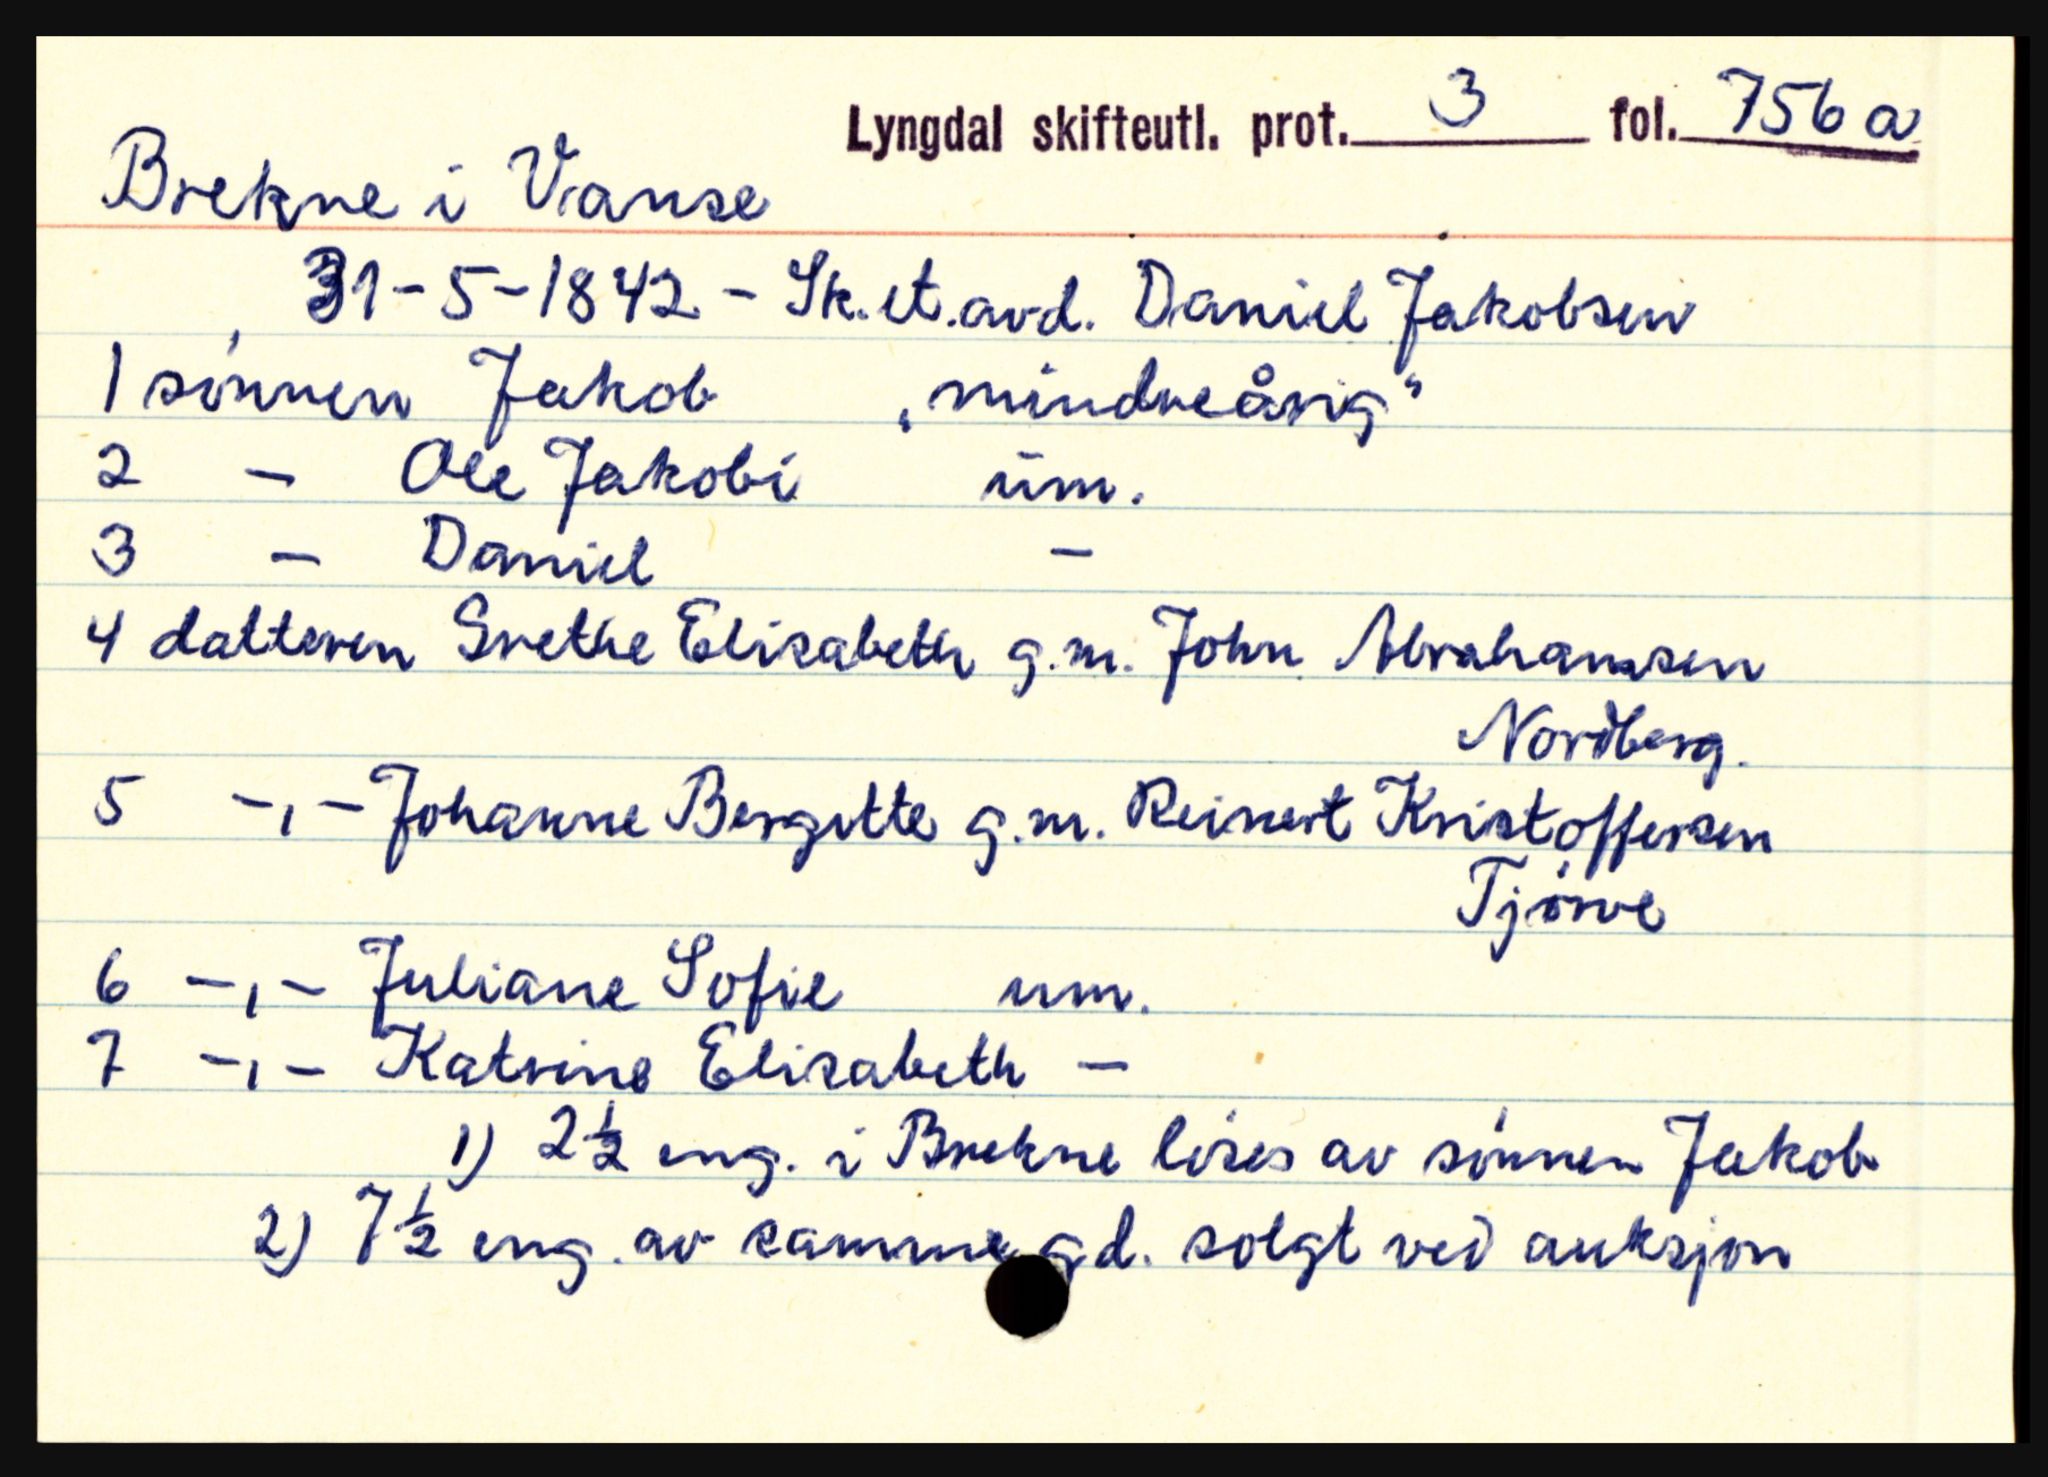 Lyngdal skifteutl. prot. 3 fol. 756 a
Brekne i Vanse
31-5-1842 - Sk. et. avd. Daniel Jakobsen
1 sønnen Jakob „mindreårig“
2 - Ole Jakobi um.
3 - Daniel -
4 datteren Grethe Elisabeth g.m. John Abrahamsen
Nordberg.
5 -,- Johanne Bergitte g.m. Reinert Kristoffersen
Tjørve
6 -,- Juliane Sofie um.
7 -,- Katrine Elisabeth -
1) 2½ eng. i Brekne løses av sønnen Jakob
2) 7½ eng. av samme gd. solgt ved auksjon